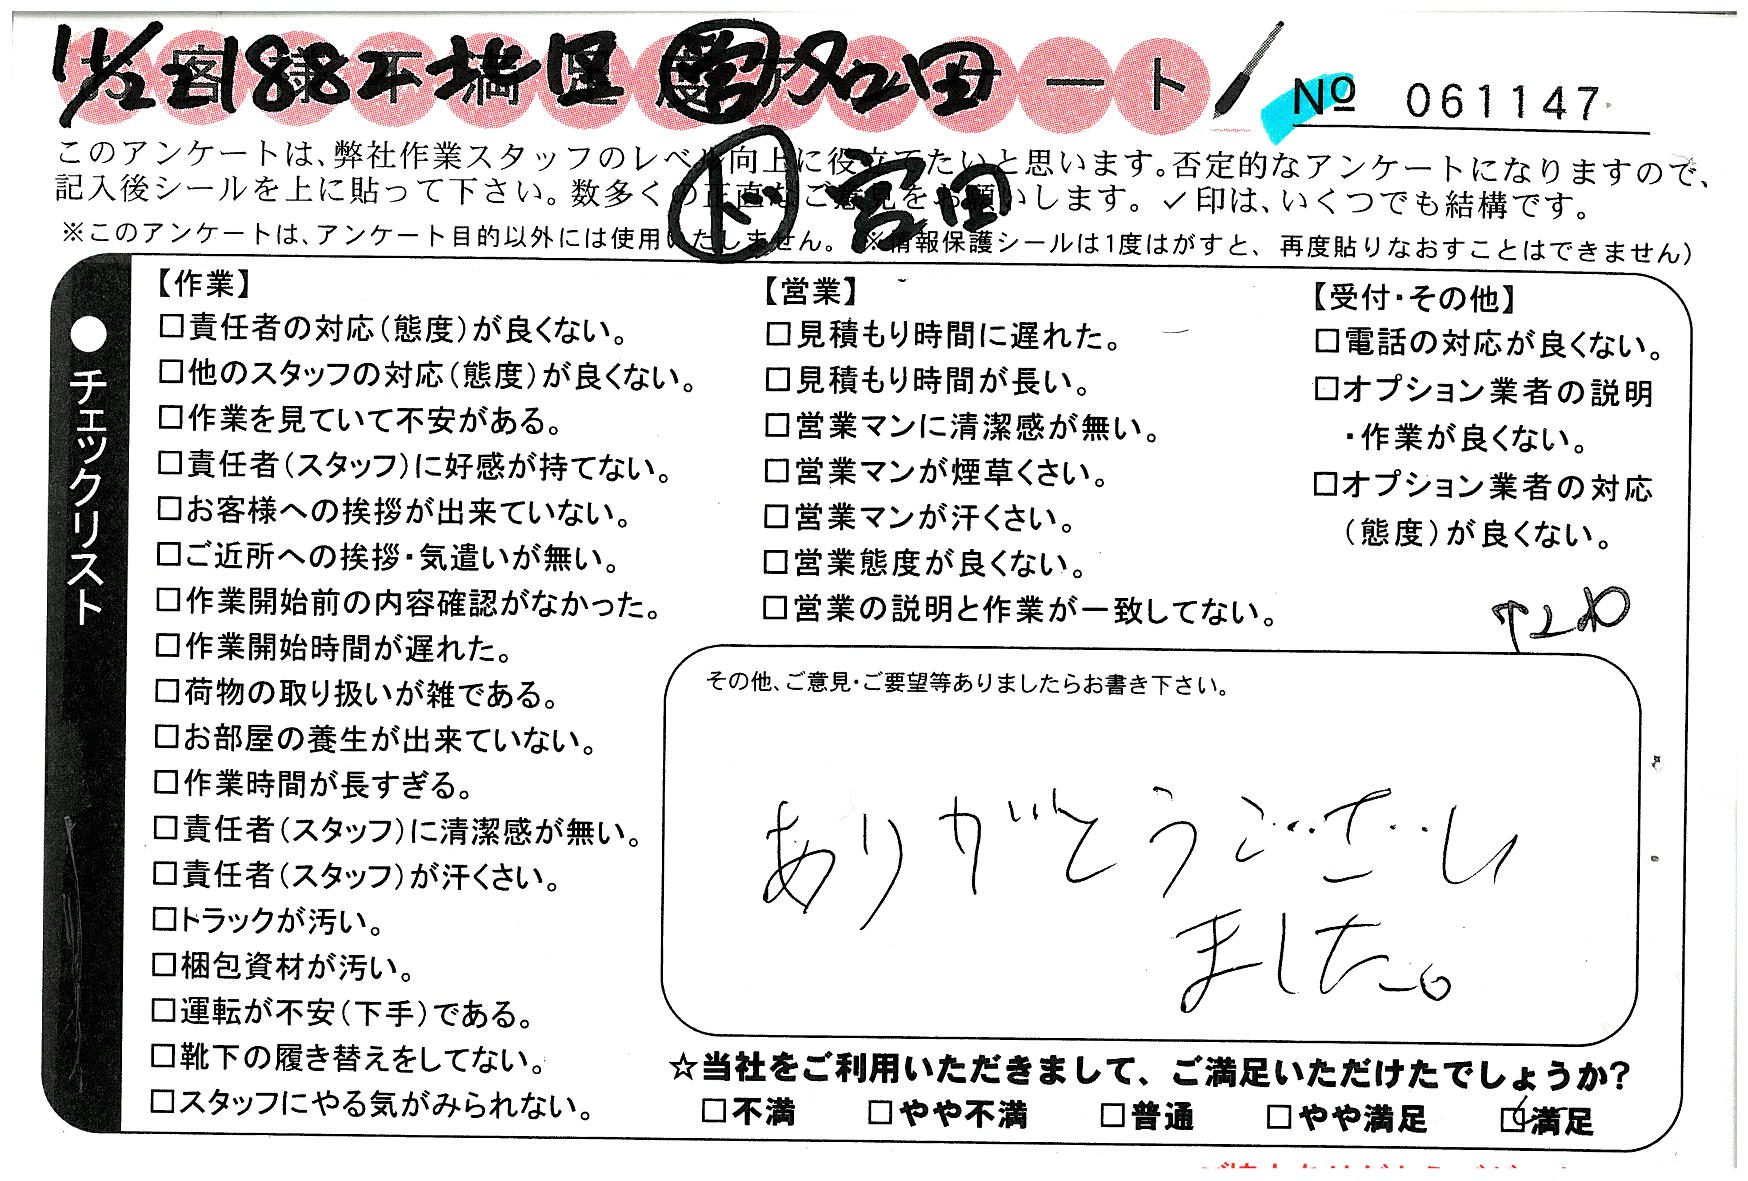 お客様不満足度アンケート
11/22 1882 地区 営 名田
No 061147
ト 宮田
このアンケートは、弊社作業スタッフのレベル向上に役立てたいと思います。否定的なアンケートになりますので、
記入後シールを上に貼って下さい。数多くの正直なご意見をお願いします。✓印は、いくつでも結構です。
※このアンケートは、アンケート目的以外には使用いたしません。(※情報保護シールは1度はがすと、再度貼りなおすことはできません)
●チェックリスト
【作業】
□責任者の対応(態度)が良くない。
□他のスタッフの対応(態度)が良くない。
□作業を見ていて不安がある。
□責任者(スタッフ)に好感が持てない。
□お客様への挨拶が出来ていない。
□ご近所への挨拶・気遣いが無い。
□作業開始前の内容確認がなかった。
□作業開始時間が遅れた。
□荷物の取り扱いが雑である。
□お部屋の養生が出来ていない。
□作業時間が長すぎる。
□責任者(スタッフ)に清潔感が無い。
□責任者(スタッフ)が汗くさい。
□トラックが汚い。
□梱包資材が汚い。
□運転が不安(下手)である。
□靴下の履き替えをしてない。
□スタッフにやる気がみられない。
【営業】
□見積もり時間に遅れた。
□見積もり時間が長い。
□営業マンに清潔感が無い。
□営業マンが煙草くさい。
□営業マンが汗くさい。
□営業態度が良くない。
□営業の説明と作業が一致してない。
【受付・その他】
□電話の対応が良くない。
□オプション業者の説明
・作業が良くない。
□オプション業者の対応
(態度)が良くない。
その他、ご意見・ご要望等ありましたらお書き下さい。
ありがとうございました。
☆当社をご利用いただきまして、ご満足いただけたでしょうか?
□不満 □やや不満 □普通 □やや満足 ☑満足